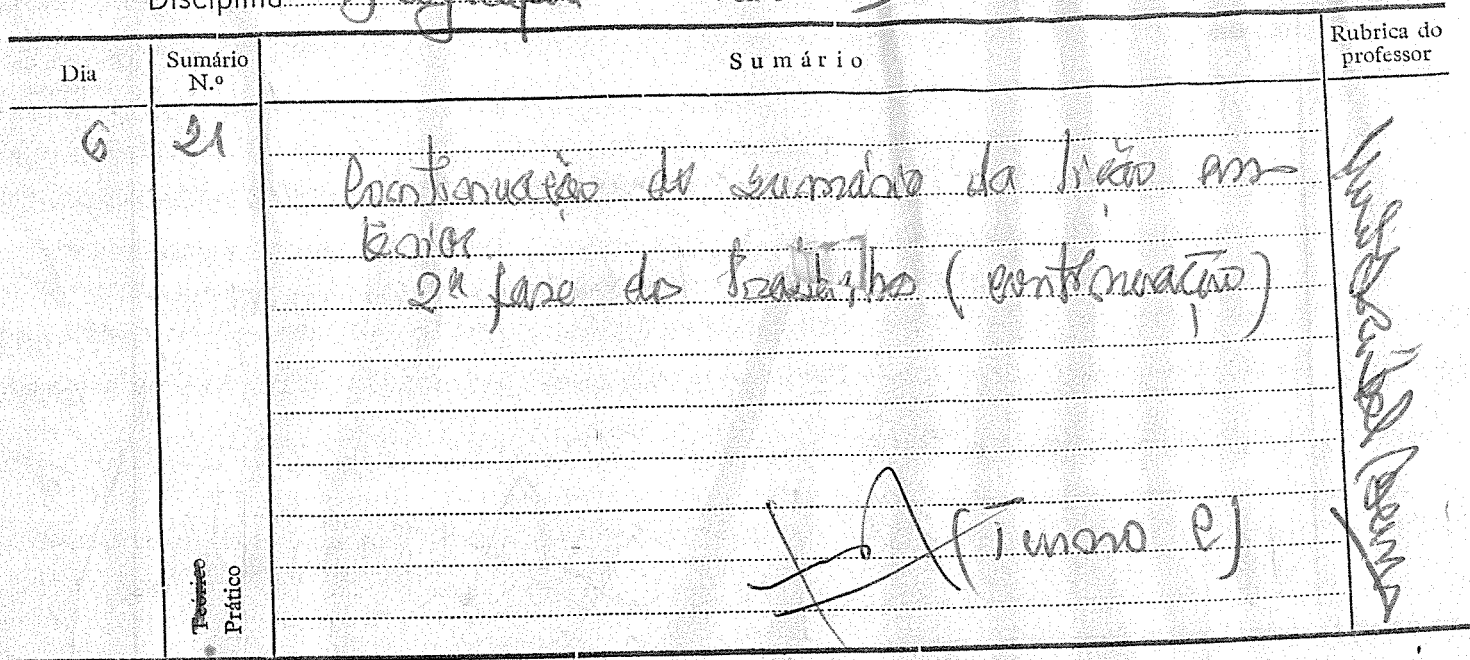 Disciplina
Dia
Sumário N.º
Sumário
Rubrica do professor
6
21
Continuação do sumário da lição an-
terior.
2ª fase do trabalho (continuação)
(Turno C)
Teórico
Prático